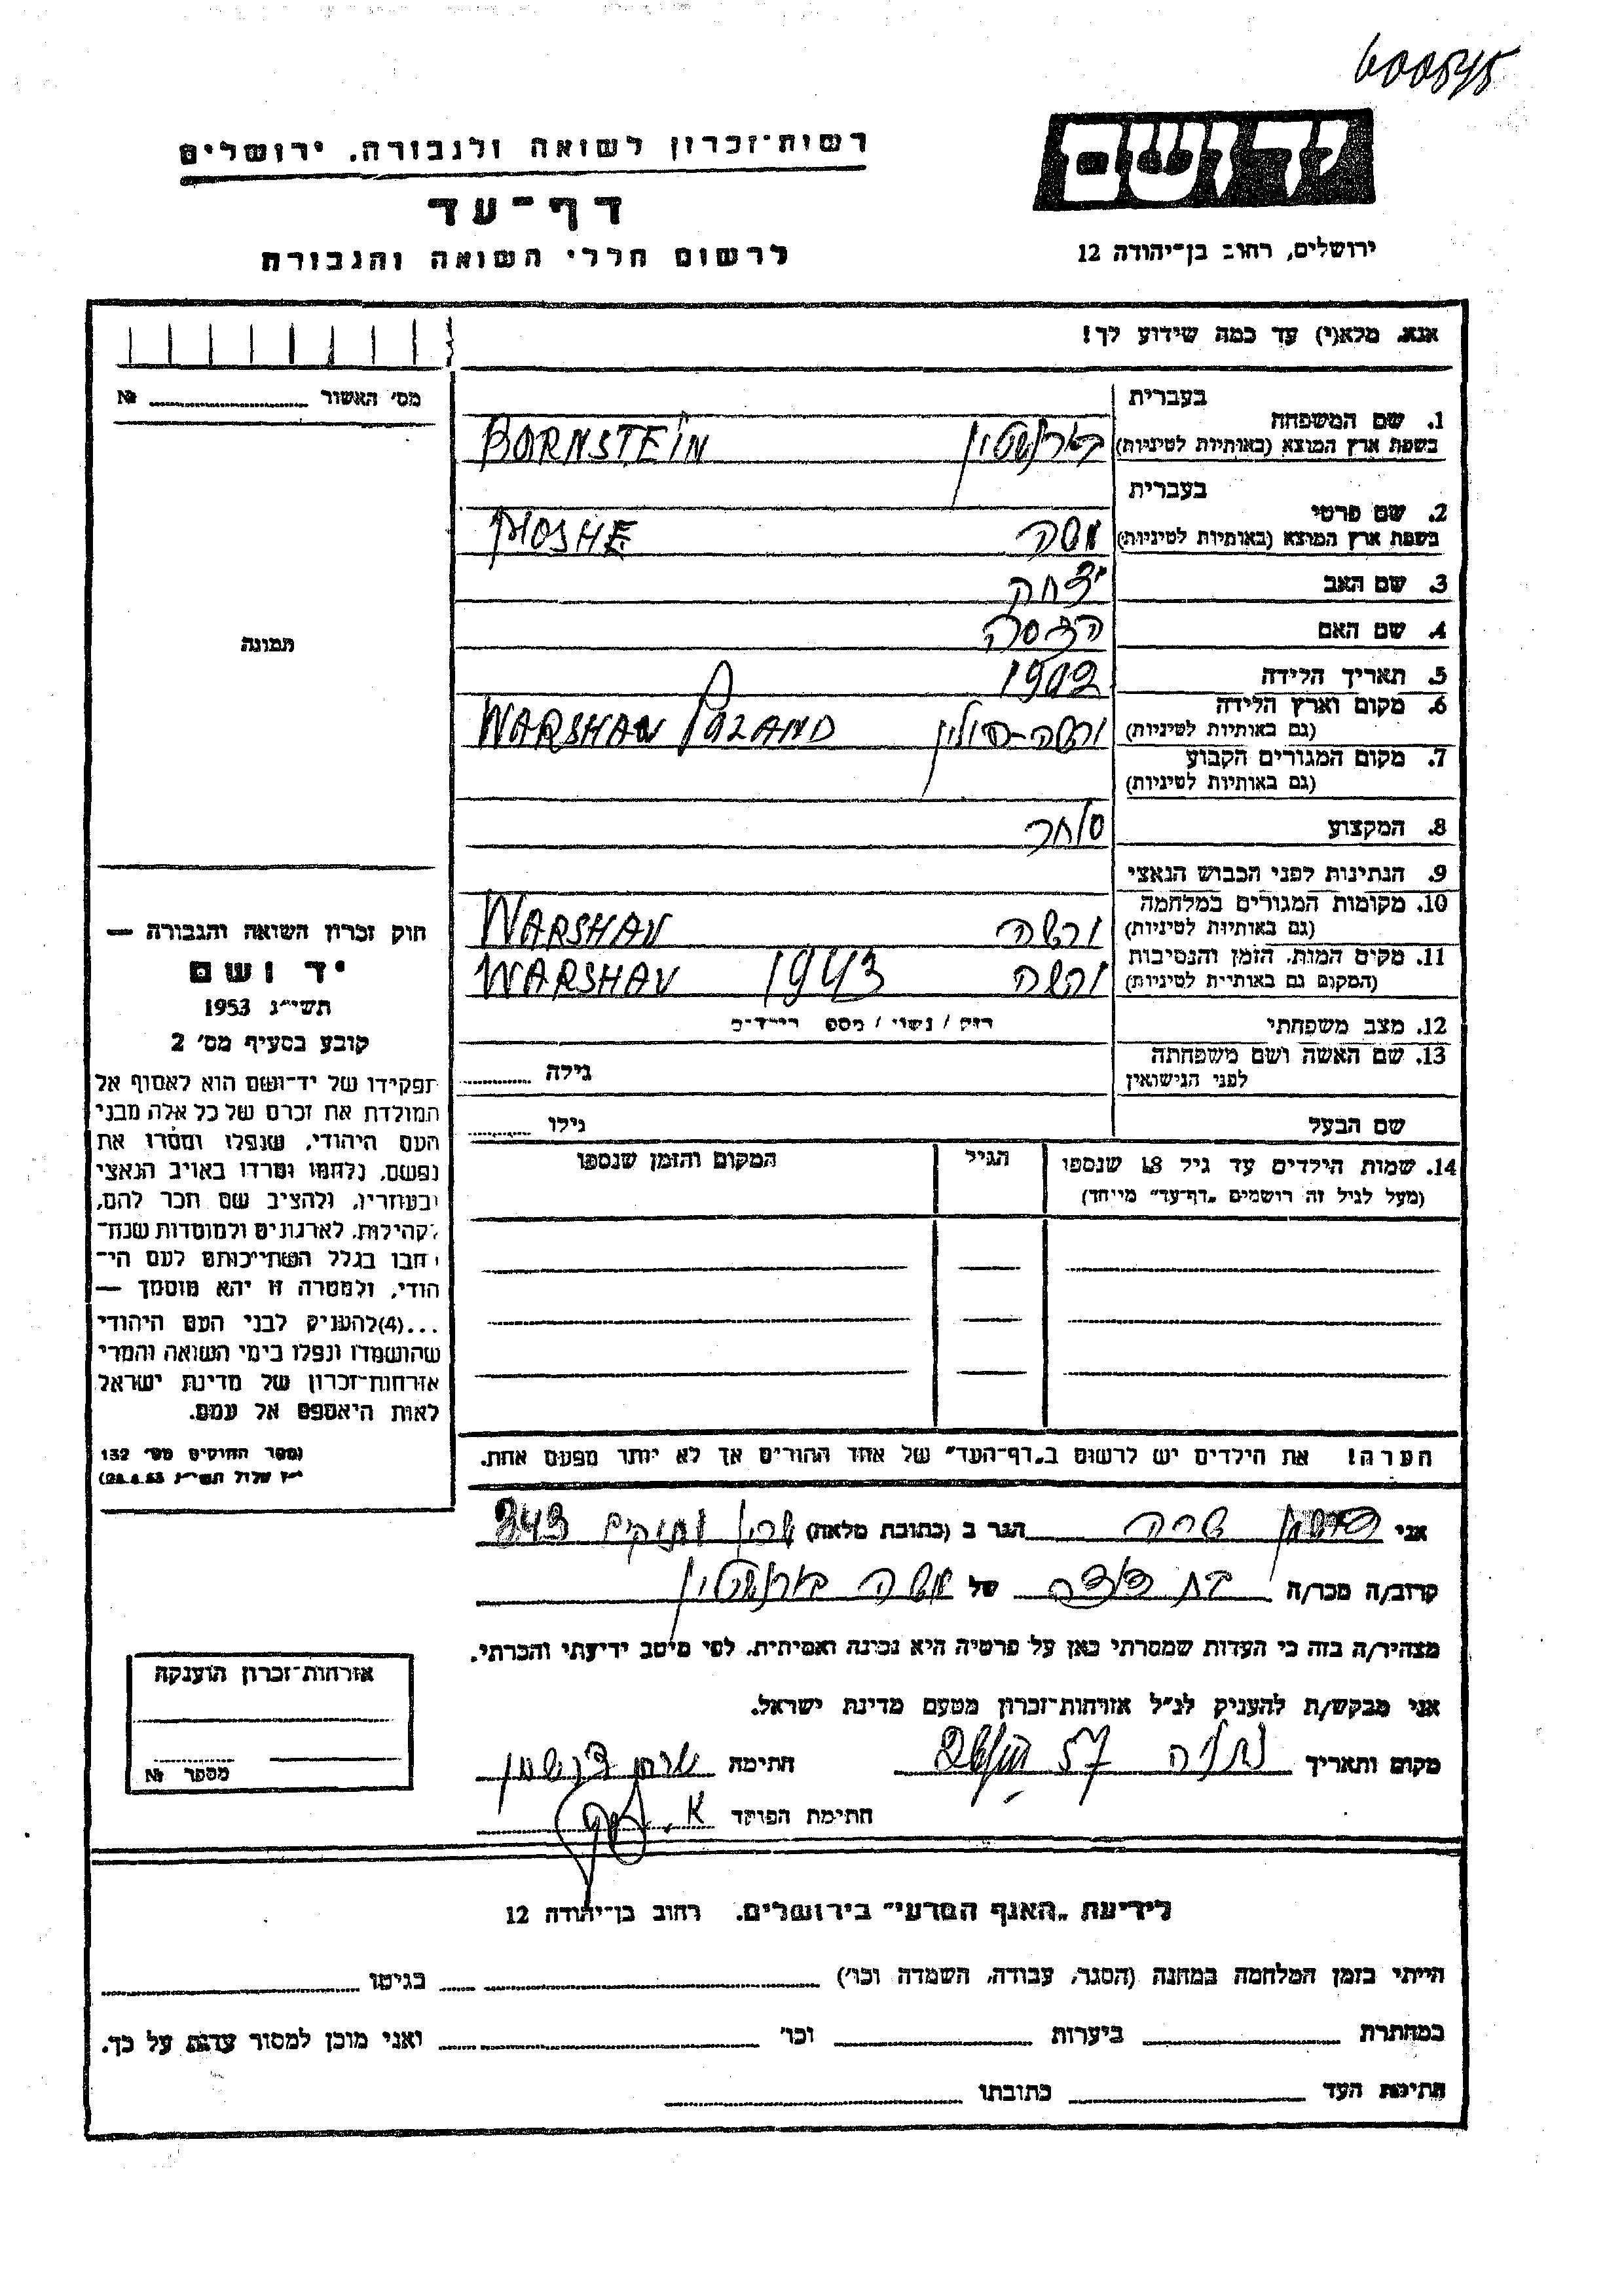 600545
יד ושם
רשות־זכרון לשואה ולגבורה. ירושלים
דף־עד
לרשום חללי השואה והגבורה
ירושלים, רחוב בן־יהודה 12
אנא. מלא(י) עד כמה שידוע לך!
מס' האשור №
בעברית
1. שם המשפחה
בשפת ארץ המוצא (באותיות לטיניות)
בורנשטיין BORNSTEIN
בעברית
2. שם פרטי
בשפת ארץ המוצא (באותיות לטיניות)
משה MOSHE
3. שם האב יצחק
4. שם האם הדסה
5. תאריך הלידה 1902
6. מקום וארץ הלידה
(גם באותיות לטיניות)
ורשה-פולין WARSHAW POLAND
7. מקום המגורים הקבוע
(גם באותיות לטיניות)
8. המקצוע סוחר
9. הנתינות לפני הכבוש הנאצי
10. מקומות המגורים במלחמה
(גם באותיות לטיניות)
ורשה WARSHAV
11. מקום המות. הזמן והנסיבות
(המקום גם באותיות לטיניות)
ורשה 1943 WARSHAV
12. מצב משפחתי רוק / נשוי / מספ הילדים
13. שם האשה ושם משפחתה
לפני הנישואין
גילה
שם הבעל גילו
14. שמות הילדים עד גיל 18 שנספו הגיל המקום והזמן שנספו
(מעל לגיל זה רושמים „דף־עד" מייחד)
הערה! את הילדים יש לרשום ב„דף־העד" של אחד ההורים אך לא יותר מפעם אחת.
תמונה
חוק זכרון השואה והגבורה —
יד ושם
תשי״ג 1953
קובע בסעיף מס' 2
תפקידו של יד־ושם הוא לאסוף אל
המולדת את זכרם של כל אלה מבני
העם היהודי, שנפלו ומסרו את
נפשם, נלחמו ומרדו באויב הנאצי
ובעוזריו, ולהציב שם וזכר להם,
לקהילות, לארגונים ולמוסדות שנח־
רבו בגלל השתייכותם לעם הי־
הודי, ולמטרה זו יהא מוסמך —
...(4)להעניק לבני העם היהודי
שהושמדו ונפלו בימי השואה והמרי
אזרחות־זכרון של מדינת ישראל
לאות היאספם אל עמם.
(ספר החוקים מס' 132
י״ז אלול תשי״ג 28.8.53)
אני שרה הגר ב (כתובת מלאה) ותיקים 343
קרוב/ה מכר/ה בת דודה של משה בורנשטיין
מצהיר/ה בזה כי העדות שמסרתי כאן על פרטיה היא נכונה ואמיתית. לפי מיטב ידיעתי והכרתי.
אני מבקש/ת להעניק לנ״ל אזרחות־זכרון מטעם מדינת ישראל.
מקום ותאריך נתניה 57 חתימה
חתימת הפוקד א.
אזרחות־זכרון הוענקה
מספר №
לידיעת „האגף המדעי" בירושלים. רחוב בן־יהודה 12
הייתי בזמן המלחמה במחנה (הסגר, עבודה, השמדה וכו') בגיטו
במחתרת ביערות וכו' ואני מוכן למסור עדות על כך.
חתימת העד כתובתו